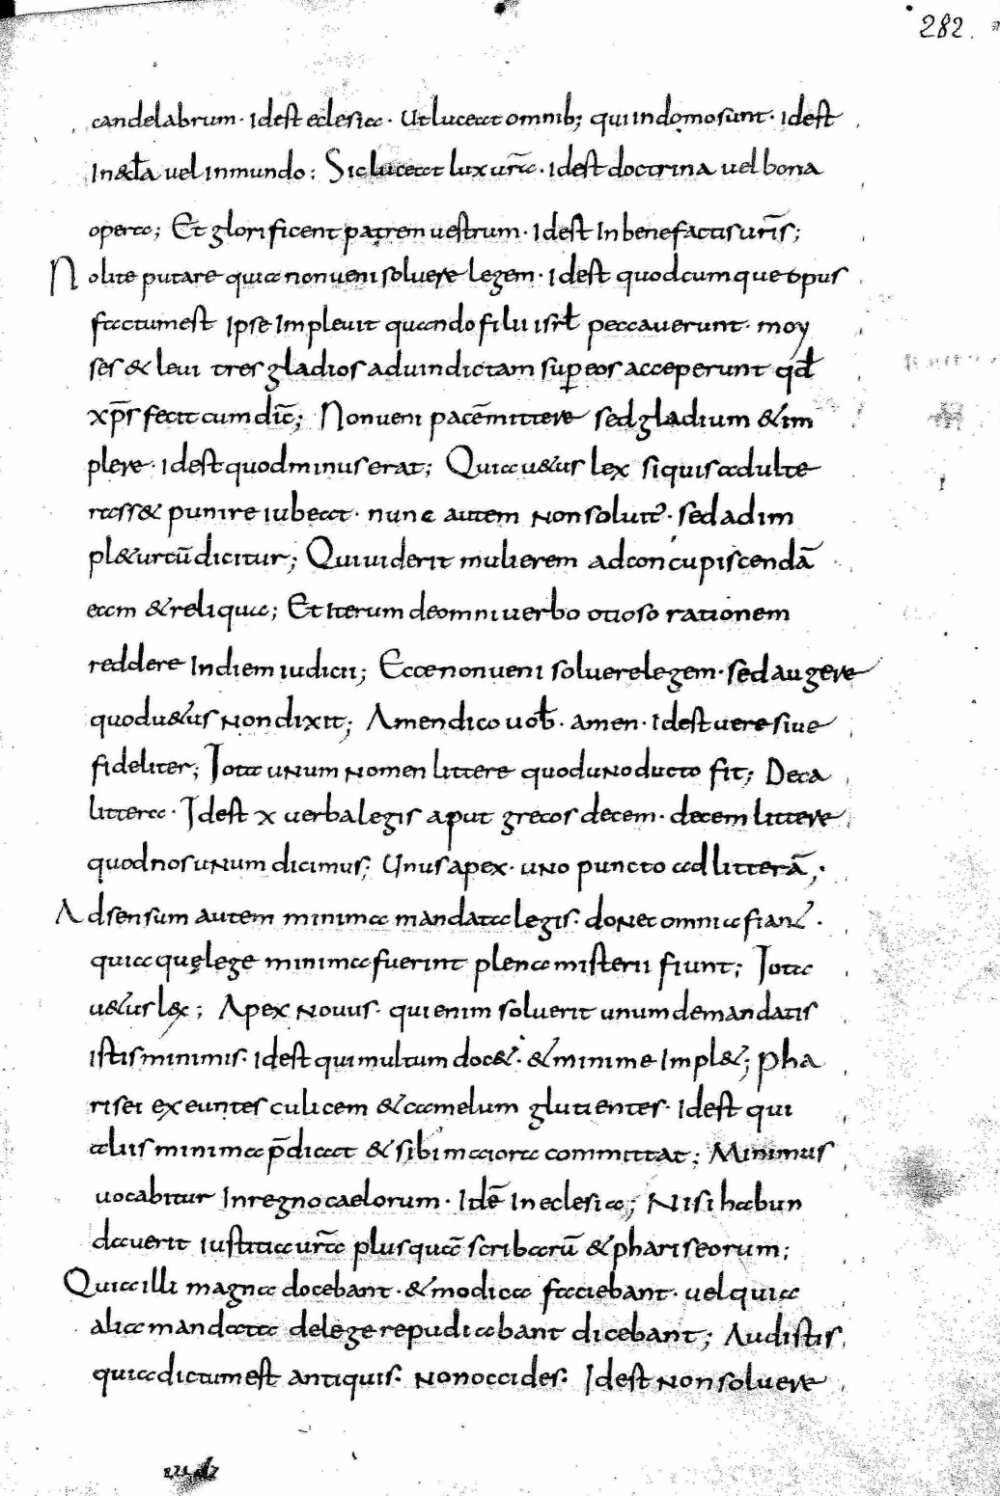 282.
candelabrum · Idest eclesia · Utluceat omnib; quiindomosunt · Idest
In&cƚa uel inmundo : Sicluceat lux ur̄a · Idest doctrina uel bona
opera ; Et glorificent patrem uestrum · Idest Inbenefactis ur̄is ;
Nolite putare quia nonueni soluere legem · Idest quodcumque opus
factumest Ipse Impleuit quando filii isrƚ peccauerunt · moy
ses & leui tres gladios aduindictam sup̱ eos acceperunt qđ
xp̄s fecit cum dic̄ ; Nonueni pacēmittere sedgladium & im
plere · Idestquodminus erat ; Quia u&us lex siquisadulte
rass& punire iubeat · nunc autem Nonsoluit̄ · sedadim
pl&urcū dicitur ; Quiuiderit mulierem adconcupiscendā
eam & reliqua ; Et Iterum deomniuerbo otioso rationem
reddere Indiem iudicii ; Eccenonueni soluerelegem · sedaugere
quodu&us Nondixit ; Amendico uoƀ · amen · Idestuere siue
fideliter ; Iota uNum Nomen littere quoduNoducto fit ; Deca
littera · Idest x uerbalegis aput grecos decem · decem littere
quodnosuNum dicimus ; Unusapex · uNo puncto adlitterā ; ·
Adsensum autem minima mandata legis : doNec omnia fian& ·
quia quęlege minima fuerint plena misterii fiunt ; Iota
u&us l&x ; Apex Nouus · quienim soluerit unumdemandatis
istisminimis · Idest quimultum doc& · & minime Impl& ; pha
risei exeuntes culicem & camelum glutientes · Idest qui
aliis minima p̄dicat & sibi maiora committat ; Minimus
uocabitur Inregnocaelorum · Idē Ineclesia ; Nisi habun
dauerit iustitia ur̄a plusquā scribarū & phariseorum ;
Quia illi magna docebant · & modica faciebant · uel quia
alia mandata delegerepudiabant dicebant ; Audistis
quiadictumest antiquis : Nonoccides : Idest Nonsoluere